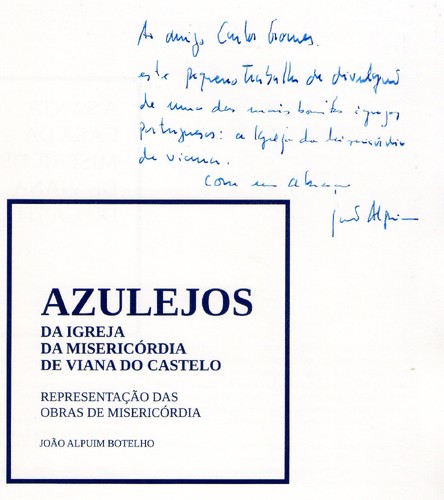 Ao amigo Carlos Gomes,
este pequeno trabalho de divulgação
de uma das mais bonitas igrejas
portuguesas: a Igreja da Misericórdia
de Viana.
Com um abraço
João Alpuim
AZULEJOS
DA IGREJA
DA MISERICÓRDIA
DE VIANA DO CASTELO
REPRESENTAÇÃO DAS
OBRAS DE MISERICÓRDIA
JOÃO ALPUIM BOTELHO